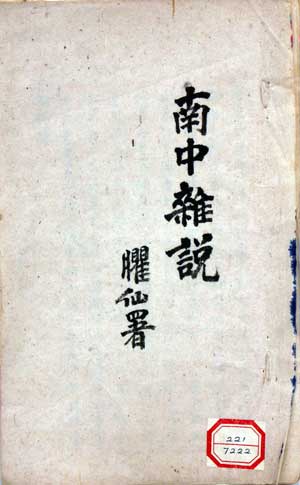 南中雜説
臞仙署
221
7222